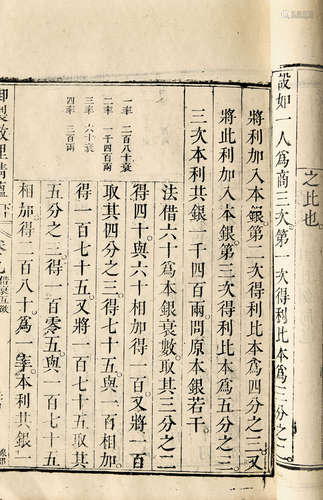 之比也
設如一人爲商三次第一次得利比本爲三分之二
將利加入本銀第二次得利比本爲四分之三又
將此利加入本銀第三次得利比本爲五分之三
三次本利共銀一千四百兩問原本銀若干
一率 二百八十衰
二率 一千四百兩
三率 六十衰
四率 三百兩
法借六十爲本銀衰數取其三分之二
得四十與六十相加得一百又將一百
取其四分之三得七十五與一百相加
得一百七十五又將一百七十五取其
五分之三得一百零五與一百七十五
相加得二百八十爲一率本利共銀一
御製數理精蘊 下 卷九 借衰互徵